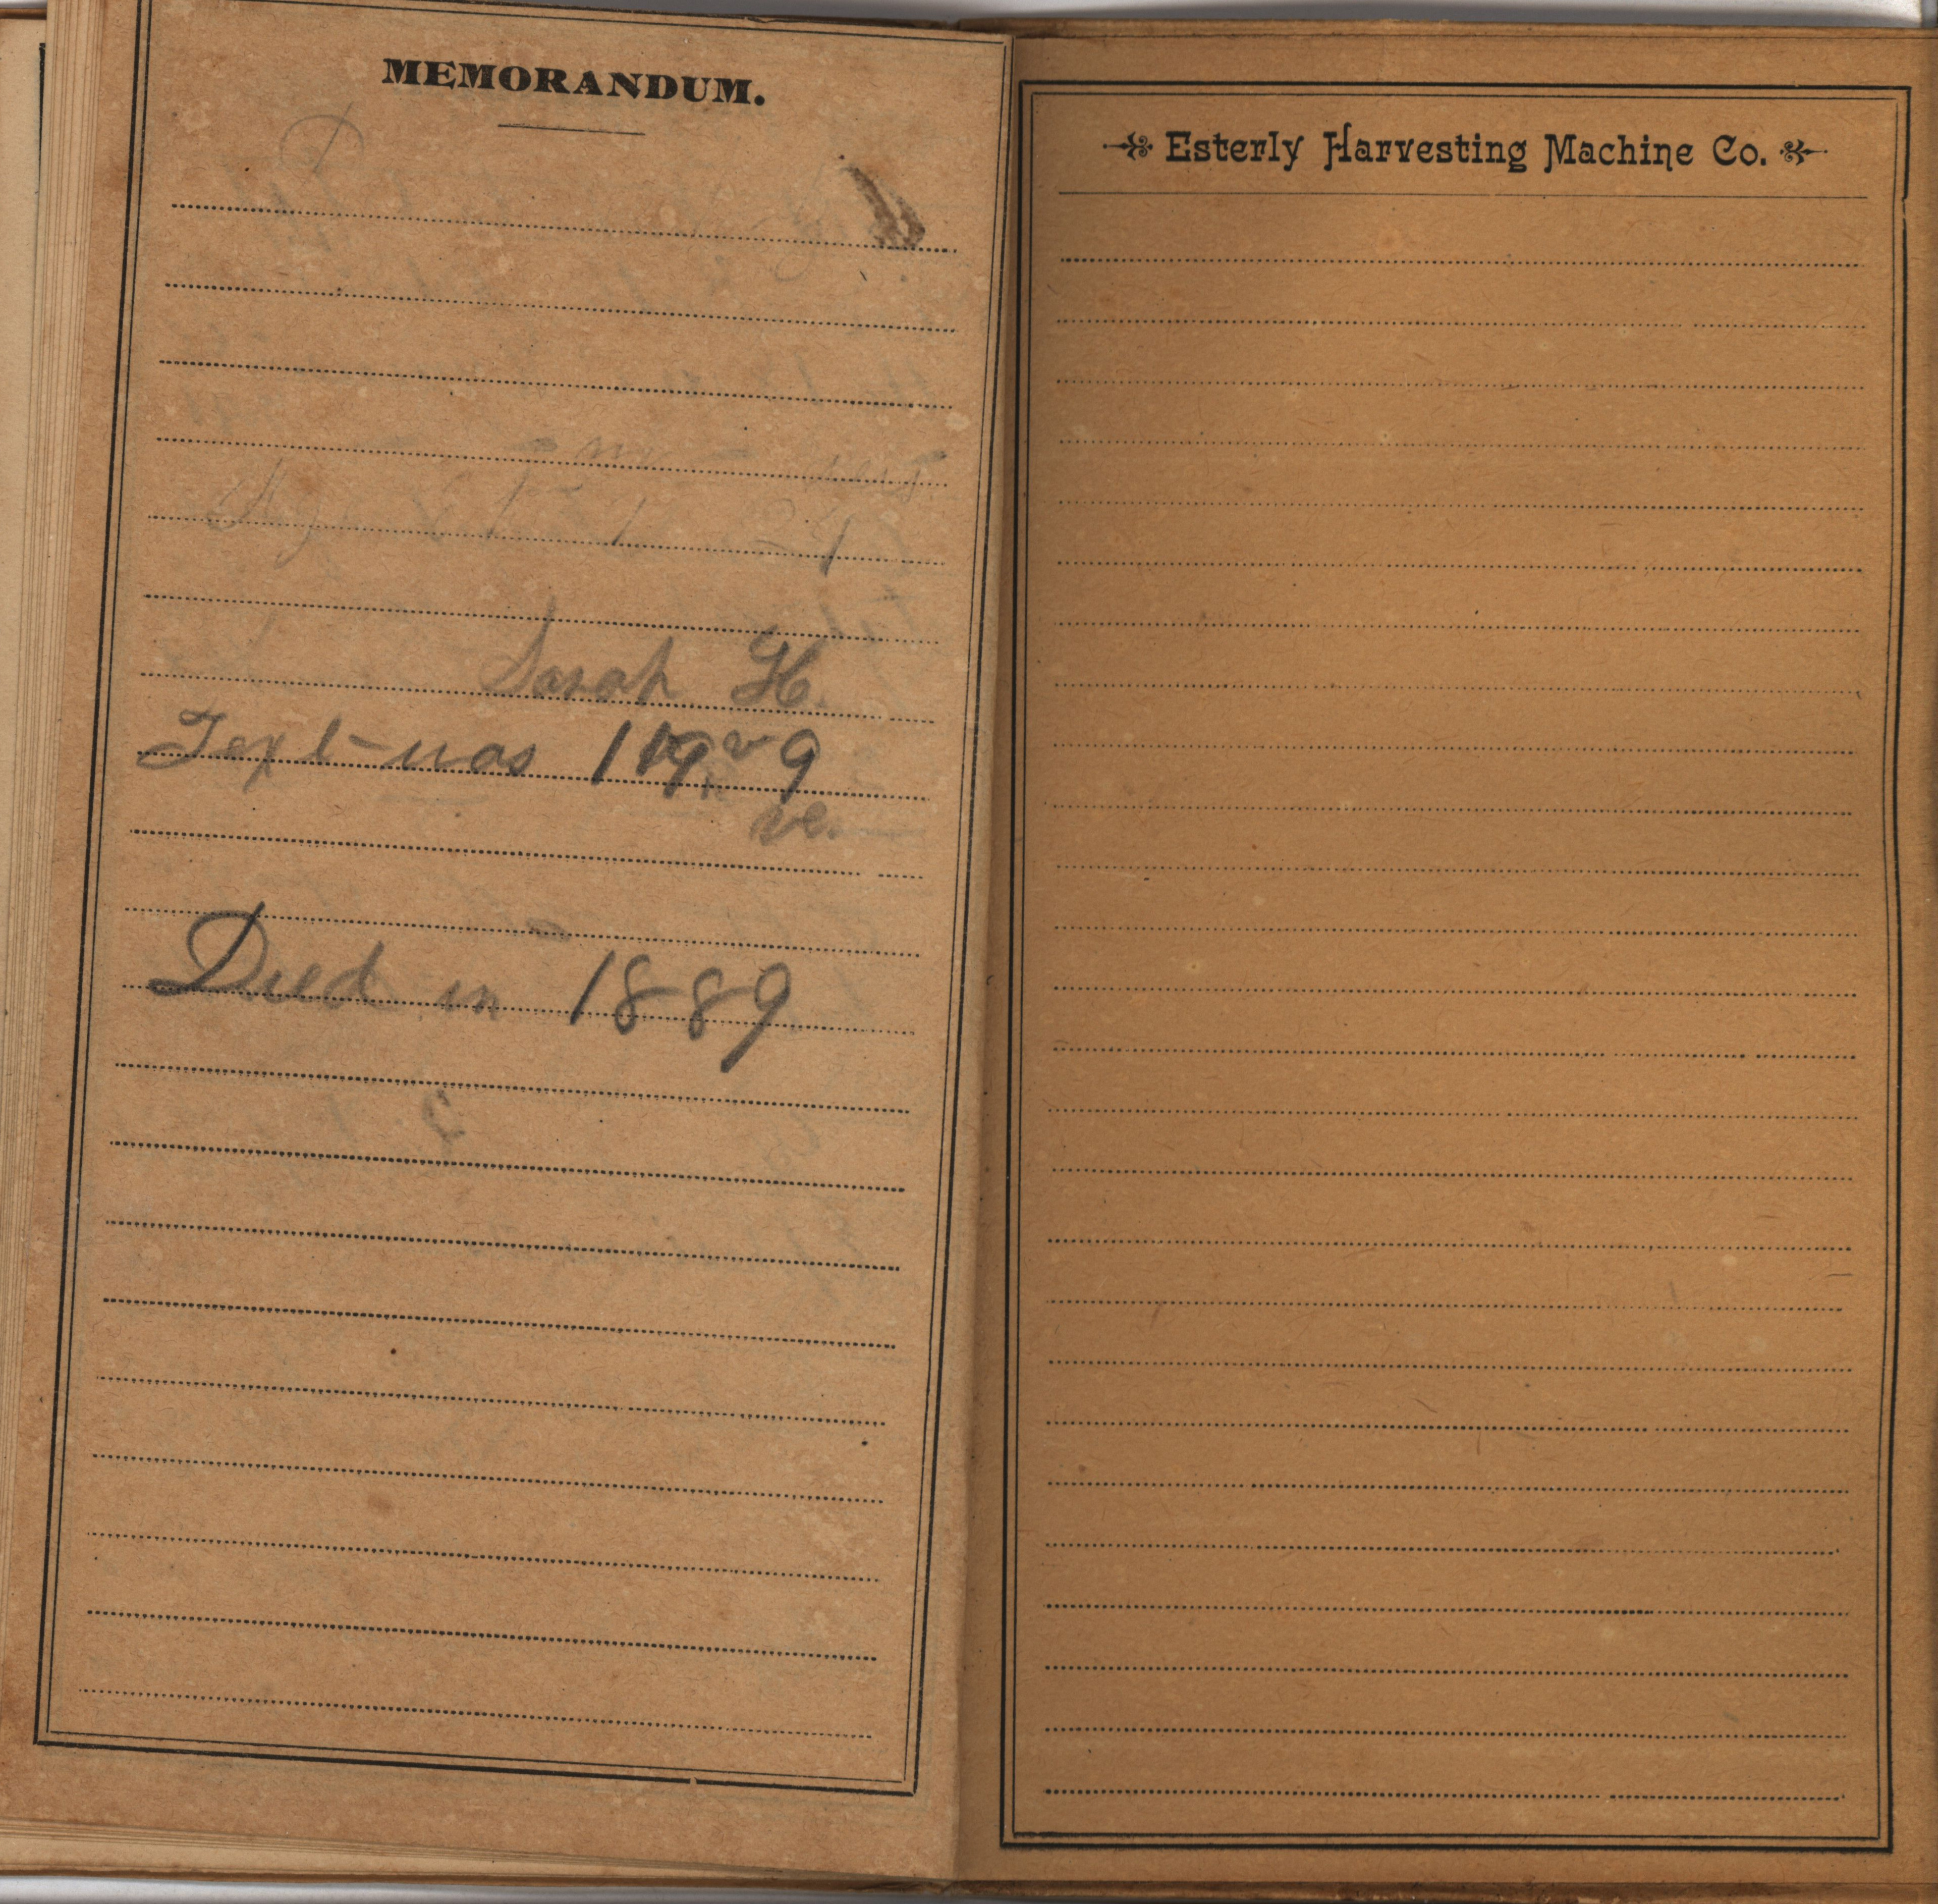 MEMORANDUM.
Sarah H.
Text was 119 9
ve.
Died in 1889
Esterly Harvesting Machine Co.